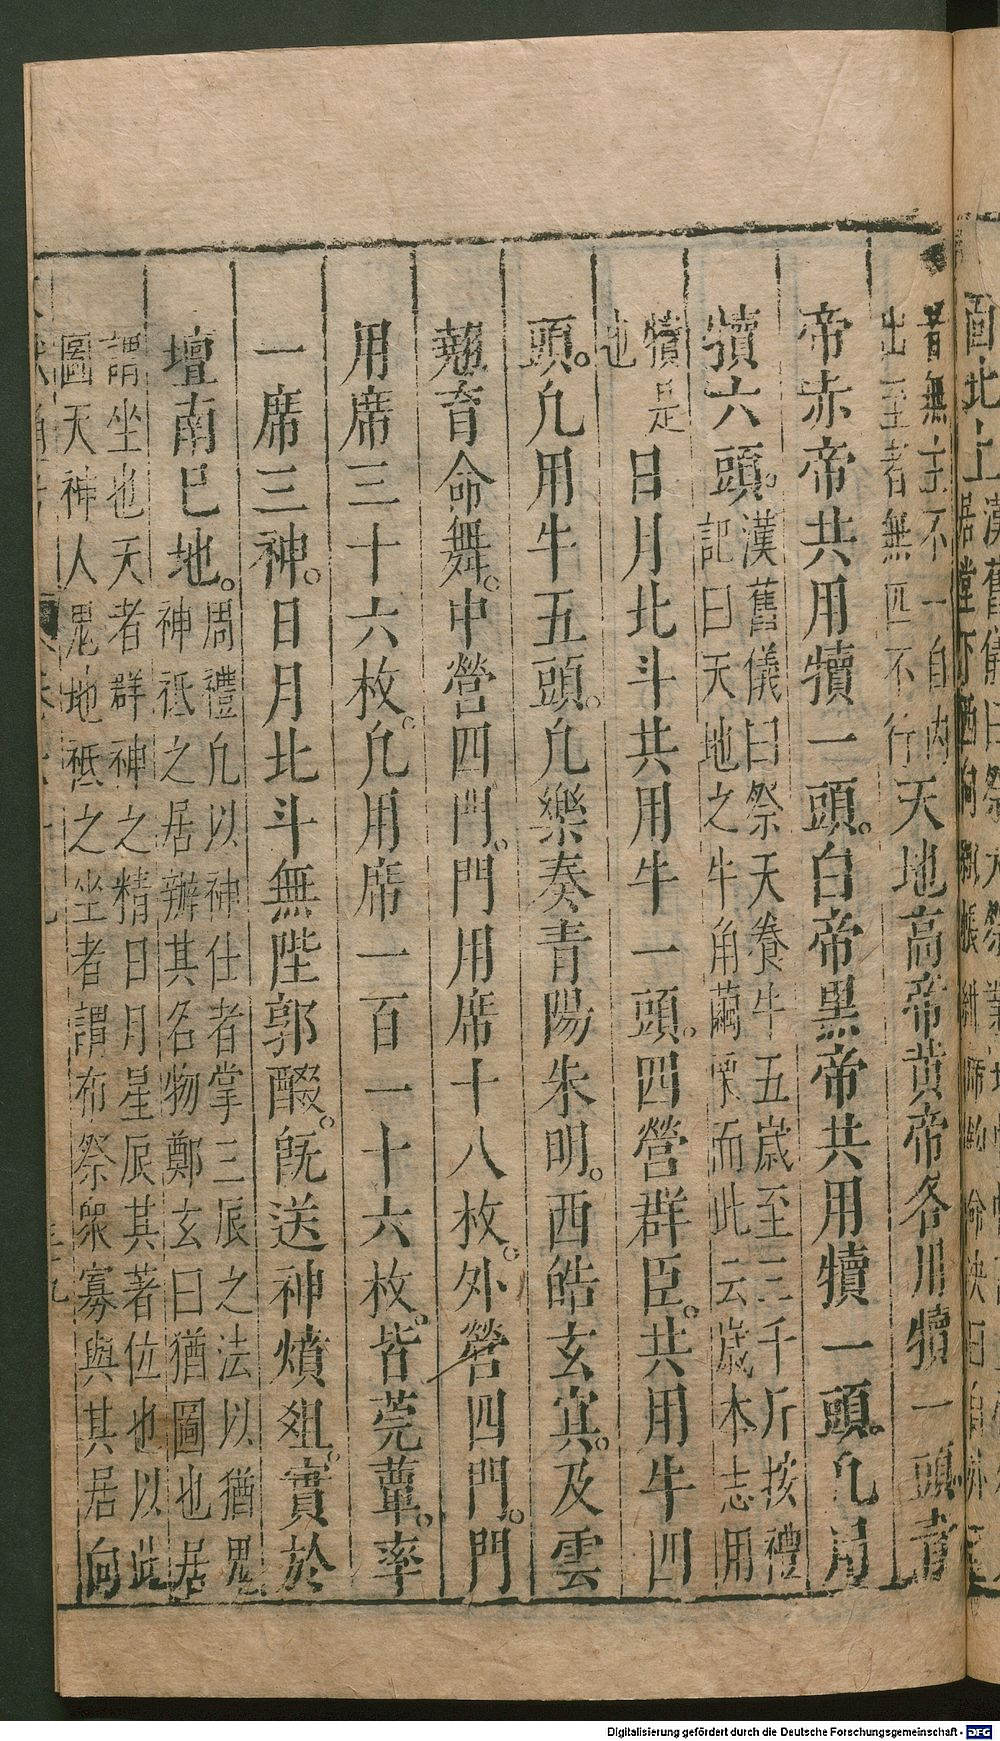 面北上
者無主不一自內
出至者無匹不行
天地高帝黃帝各用犢一頭青
帝赤帝共用犢一頭。白帝黑帝共用犢一頭。凡用
犢六頭。
漢舊儀曰祭天養牛五歲至三千斤按禮
記曰天地之牛角繭栗而此云歲本志用
犢是
也
日月北斗共用牛一頭。四營群臣。共用牛四
頭。凡用牛五頭。凡樂奏青陽朱明。西皓玄冥。及雲
翹育命舞。中營四門。門用席十八枚。外營四門。門
用席三十六枚。凡用席一百一十六枚。皆莞蕈。率
一席三神。日月北斗無陛郭醊。旣送神燌俎。實於
壇南巳地。
周禮凡以神仕者掌三辰之法以猶鬼
神祇之居辦其名物鄭玄曰猶圖也居
謂坐也天者群神之精日月星辰其著位也以此
圖天神人鬼地祇之坐者謂布祭衆寡與其居向
Digitalisierung gefördert durch die Deutsche Forschungsgemeinschaft - DFG